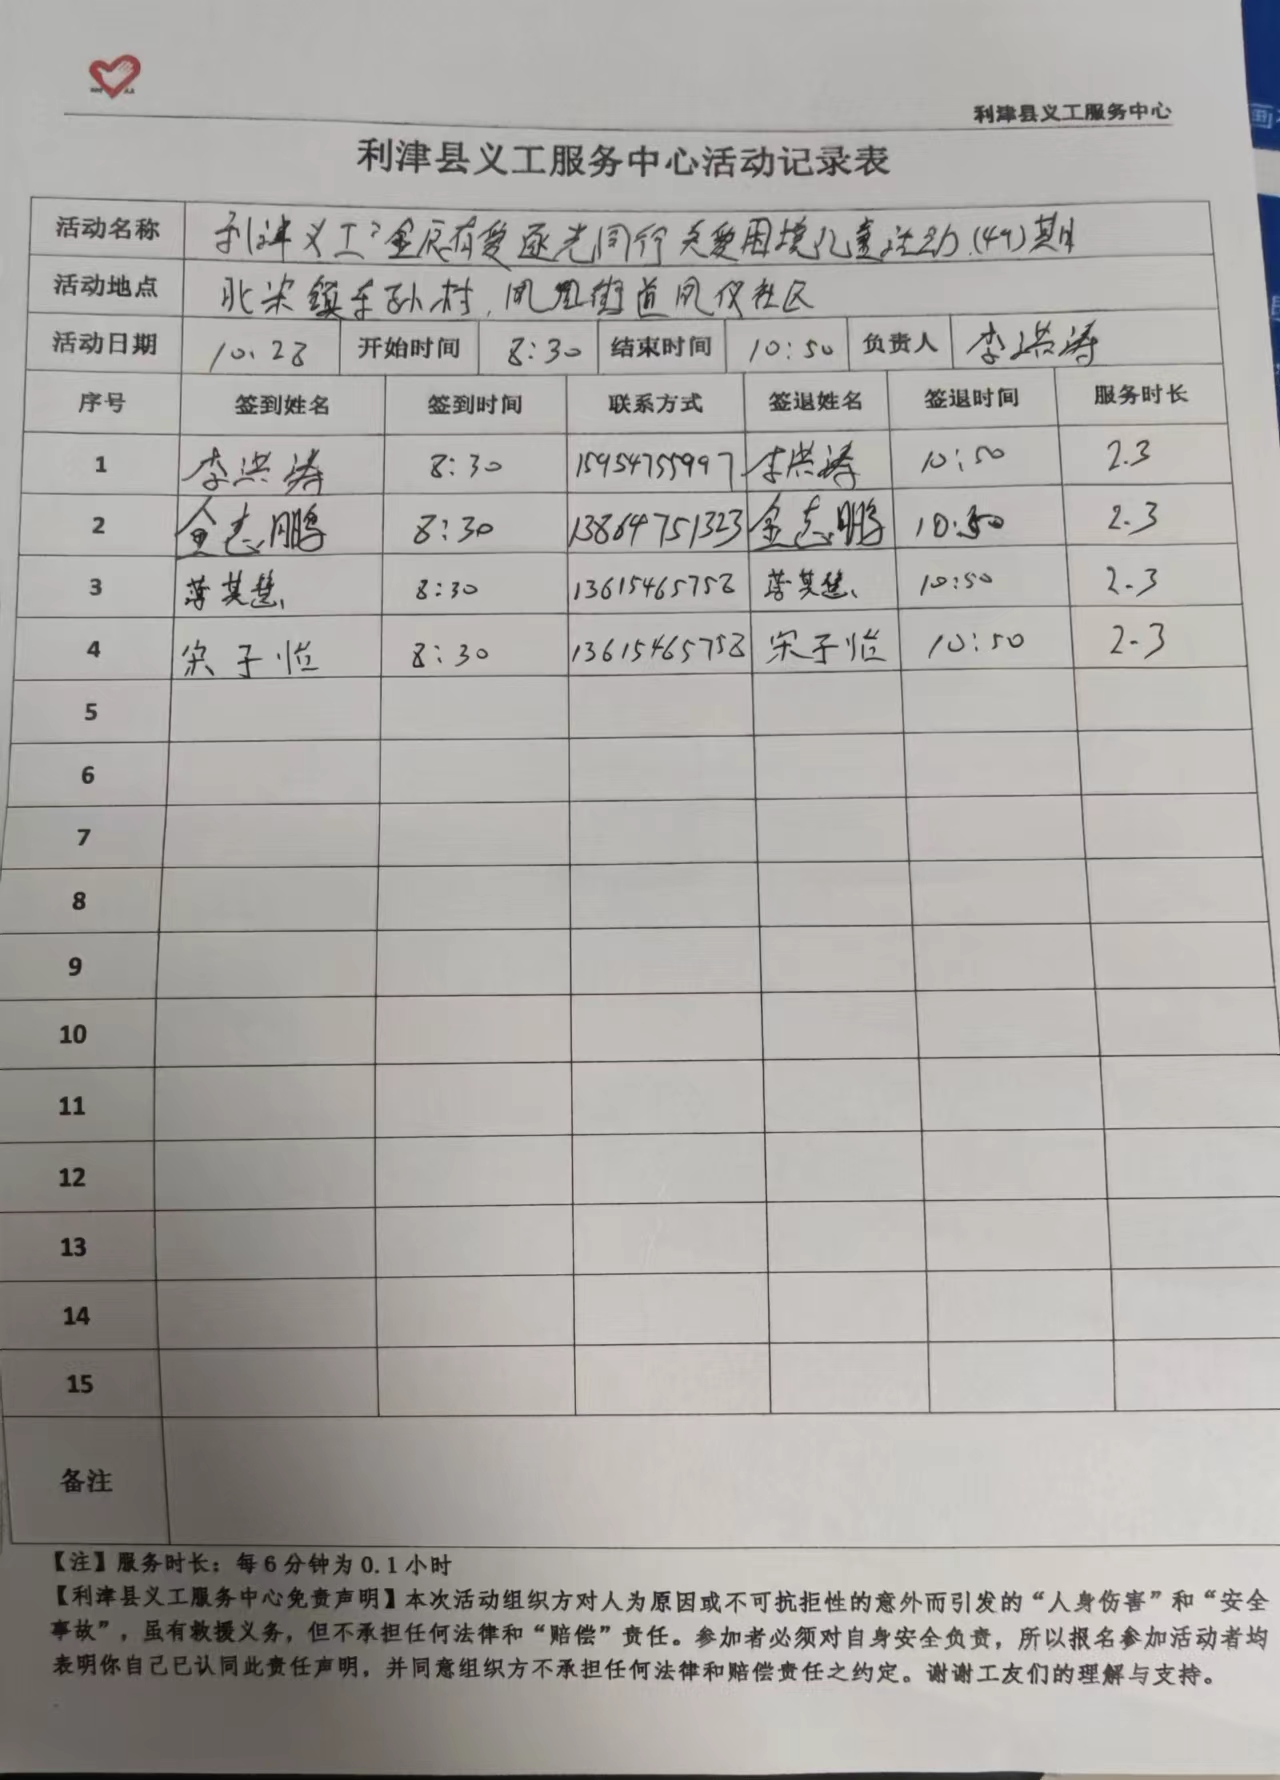 利津县义工服务中心
利津县义工服务中心活动记录表
活动名称 利津义工"金辰有爱逐光同行关爱困境儿童活动.(49)期
活动地点 北宋镇东孙村.凤凰街道凤仪社区
活动日期 10.28 开始时间 8:30 结束时间 10:50 负责人 李洪涛
序号 签到姓名 签到时间 联系方式 签退姓名 签退时间 服务时长
1 李洪涛 8:30 15954755997 李洪涛 10:50 2.3
2 金志鹏 8:30 13864751323 金志鹏 10:50 2.3
3 蒋其慧 8:30 13615465758 蒋其慧 10:50 2.3
4 宋子怡 8:30 13615465758 宋子怡 10:50 2.3
5
6
7
8
9
10
11
12
13
14
15
备注
【注】服务时长：每6分钟为0.1小时
【利津县义工服务中心免责声明】本次活动组织方对人为原因或不可抗拒性的意外而引发的“人身伤害”和“安全
事故”，虽有救援义务，但不承担任何法律和“赔偿”责任。参加者必须对自身安全负责，所以报名参加活动者均
表明你自己已认同此责任声明，并同意组织方不承担任何法律和赔偿责任之约定。谢谢工友们的理解与支持。